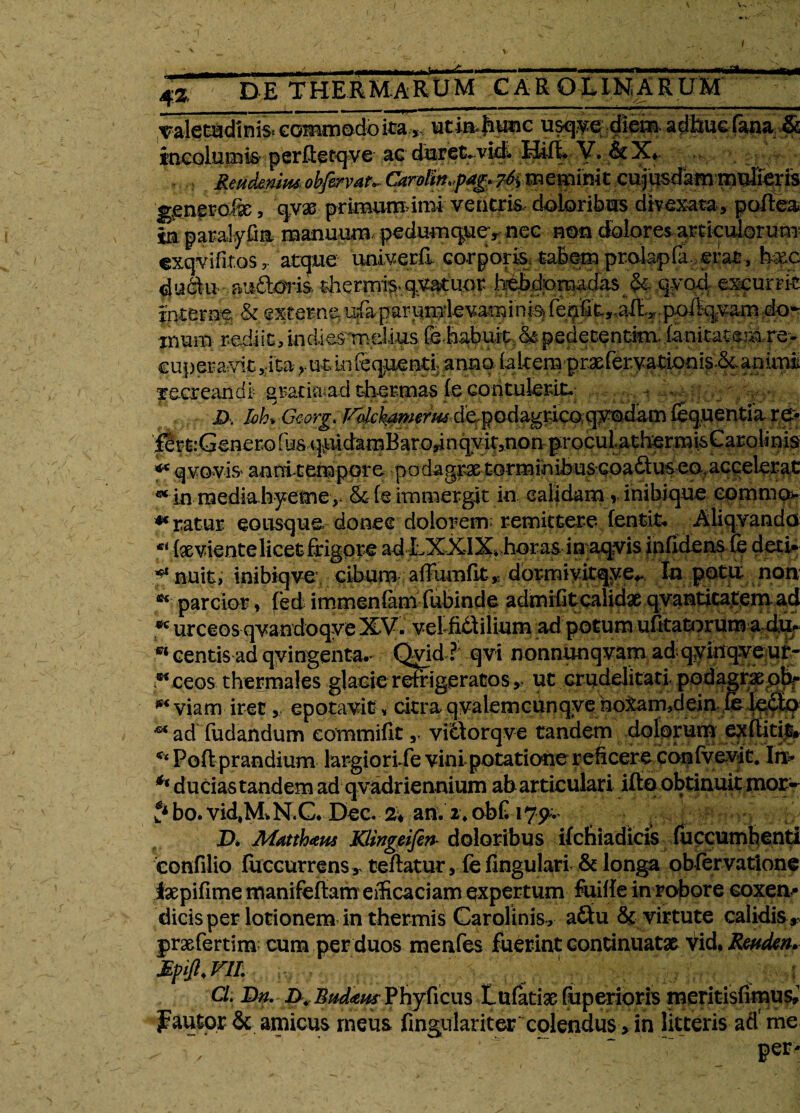 42 DE THERMARUM CAROLINARUM
valetudinis commodo ita, ut in hunc usqve diem adhuc sana &
incolumis perstetqve ac duret. vid. Hist. V. & X.
Reudenius observat. Carolin. pag. 76, meminit cujusdam mulieris
generosæ, qvæ primum imi ventris doloribus divexata, postea
in paralysin manuum pedumque, nec non dolores articulorum
exqvisitos, atque universi corporis tabem prolapsa erat, hæc
ductu auctoris thermis qvatuor hebdomadas & qvod excurrit
interne & externe usa parum levaminis sensit, ast, postqvam do-
mum rediit, indies melius se habuit, & pedetentim sanitatem re-
cuperavit, ita, ut in sequenti anno saltem præservationis & animi
recreandi gratia ad thermas se contulerit.
D. Joh. Georg. Volckamerus de podagrico qvodam sequentia re-
fert: Generosus quidam Baro, inqvit, non procul a thermis Carolinis
“ qvovis anni tempore podagræ torminibus coactus eo accelerat
“ in media hyeme, & se immergit in calidam, inibique commo-
“ ratur eousque donec dolorem remittere sentit. Aliqvando
“ sæviente licet frigore ad LXXIX. horas in aqvis insidens se deti-
“ nuit, inibiqve cibum assumsit, dormivitqve. In potu non
“ parcior, sed immensam subinde admisit calidæ qvantitatem ad
“ urceos qvandoqve XV. vel fictilium ad potum usitatorum a du-
“ centis ad qvingenta. Qvid? qvi nonnunqvam ad qvinqve ur-
“ ceos thermales glacie refrigeratos, ut crudelitati podagræ ob-
“ viam iret, epotavit, citra qvalemcunqve noxam, dein se lecto
“ ad sudandum commisit, victorqve tandem dolorum exstitit.
“ Post prandium largiori se vini potatione reficere consvevit. In-
“ ducias tandem ad qvadriennium ab articulari isto obtinuit mor-
“ bo. vid. M. N. C. Dec. 2. an. 2. obs. 179.
D. Matthæus Klingeisen doloribus ischiadicis succumbenti
consilio succurrens, testatur, se singulari & longa observatione
sæpisime manifestam efficaciam expertum fuisse in robore coxen-
dicis per lotionem in thermis Carolinis, actu & virtute calidis,
præsertim cum per duos menses fuerint continuatæ vid. Reuden.
Epist. VII.
Cl. Dn. D. Budæus Physicus Lusatiæ superioris meritisfimus,
Fautor & amicus meus singulariter colendus, in litteris ad me
per-